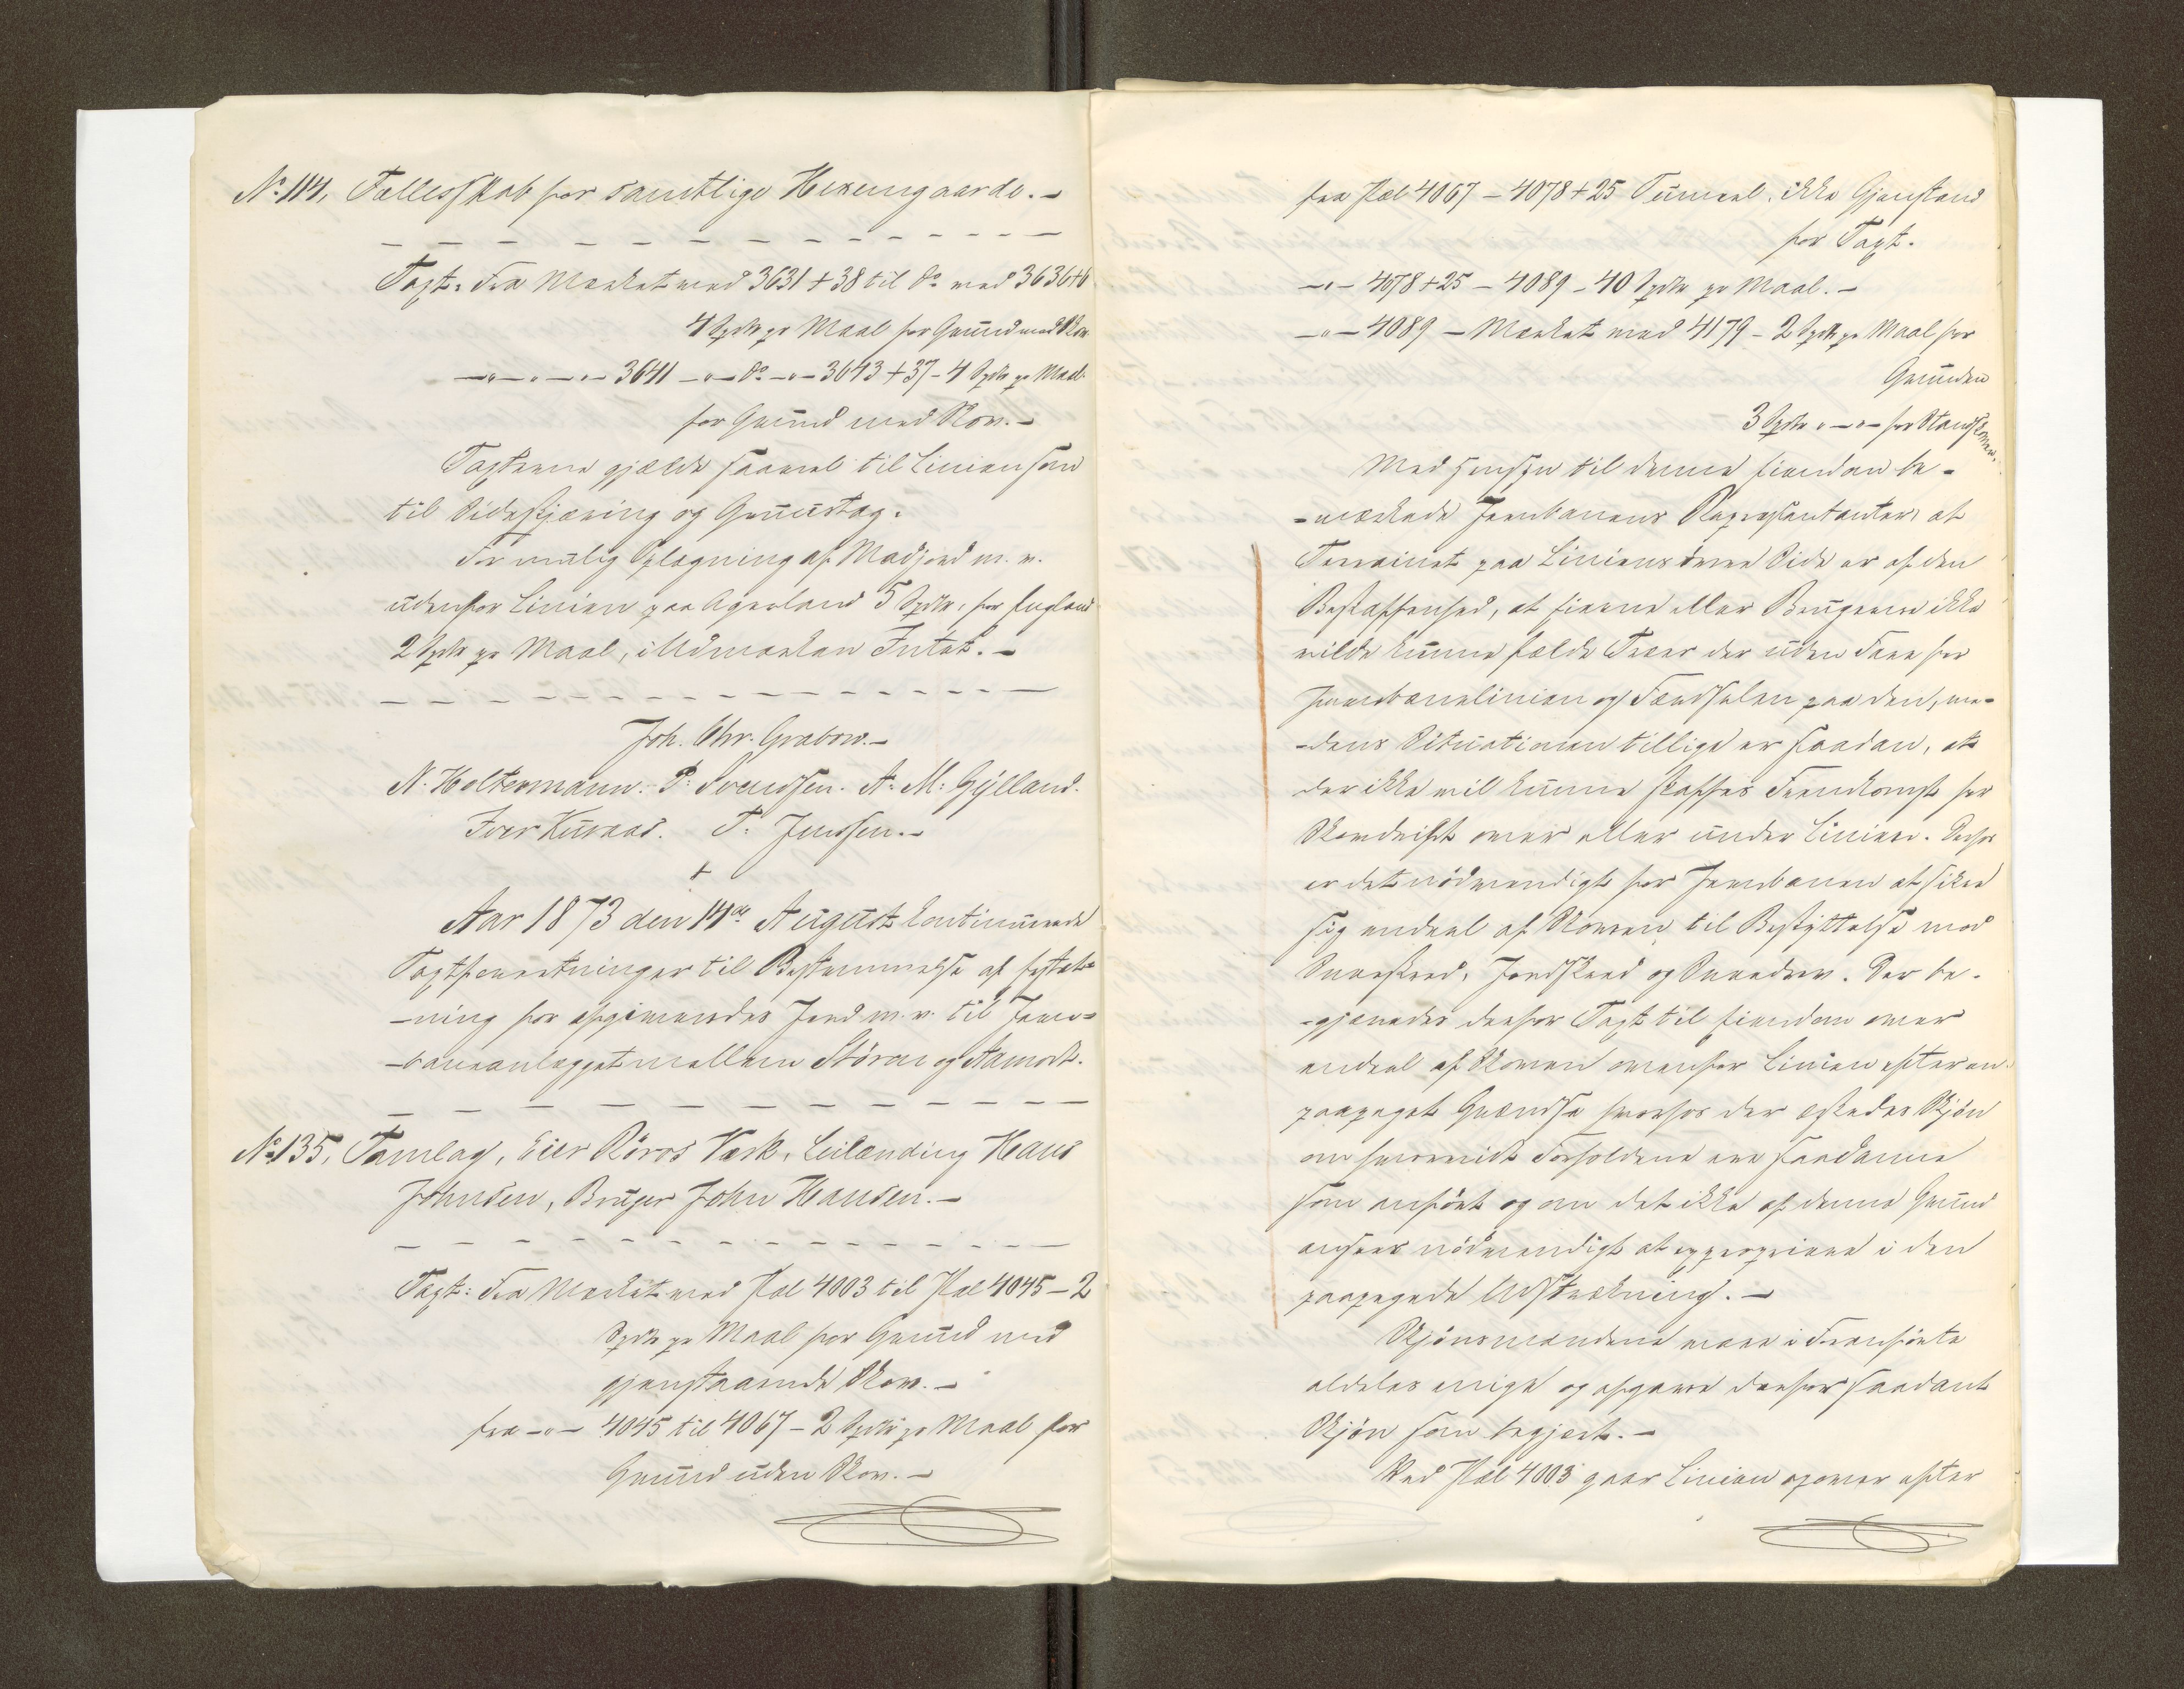 No 114, Fællesskab for samtlige Hexemgaarde. -
Taxt: Fra Mærket med 3631 + 38 til do med 3636+6
4 Spdlr pr Maal for Grund med Skov
—"—"—"— 3641 —"— do —"— 3643 + 37 - 4 Spdlr pr Maal
for Grund med Skov. -
Taxterne gjælde saavel til Linien som
til Sideskjæring og Gruustag.
For mulig Oplægning af Madjord m. v.
udenfor Linien paa Agerland 5 Spdlr, for England
2 Spdlr pr Maal, i Udmarken Intet. -
Joh. Chr. Grabow. -
N. Holtermann. P. Svendsen. A. M. Gylland.
Iver Kuraas. T. Jenssen. -
+
Aar 1873 den 14de August continuerede
Taxtforretninger til Bestemmelse af Erstat-
-ning for afgivendes Jord m. v. til Jern-
-baneanlægget mellem Støren og Aamodt.
No 135, Tamlag, Eier Röros Værk, Leilænding Hans
Johnsen, Bruger John Hansen. -
Taxt: Fra Mærket med Pæl 4003 til Pæl 4045 - 2
Spdlr pr Maal for Grund med
gjenstaaende Skov. -
fra —"— 4045 til 4067 - 2 Spdlr pr Maal for
Grund uden Skov. -
fra Pæl 4067 - 4078 + 25 Tunnel, ikke Gjenstand
for Taxt.
—"— 4078 + 25 - 4089 - 40 Spdlr pr Maal. -
—"— 4089 - Mærket med 4179 - 2 Spdlr pr Maal for
Grunden
3 Spdlr " —"— for Standskoven.
Med Hensyn til denne Eiendom be-
-mærkede Jernbanens Repræsentanter, at
Terrainet paa Liniens øvre Side er af den
Beskaffenhed, at Eierne eller Brugerne ikke
vilde kunne fælde Træer der uden Fare for
Jernbanelinien og Færdselen paa den, me-
-dens Situationen tillige er saadan, at
der ikke vil kunne skaffes Fremkomst for
Skovdrift over eller under Linien. Derfor
er det nödvendigt for Jernbanen at sikre
sig endeel af Skoven til Beskyttelse mod
Sneeskred, Jordskred og Sneedrev. Der be-
-gjæredes derfor Taxt til Eiendom over
endeel af Skoven ovenfor Linien efter en
paapeget Grændse hvorfor der æskedes Skjön
om hvorvidt Forholdene ere saadanne
som anført og om det ikke af denne Grund
ansees nödvendigt at expropriere i den
paapegede Udstrækning. -
Skjönsmændene vare i Fremførte
aldeles enige og afgave derfor saadant
Skjön som begjært. -
Ved Pæl 4003 gaar Linien opover efter